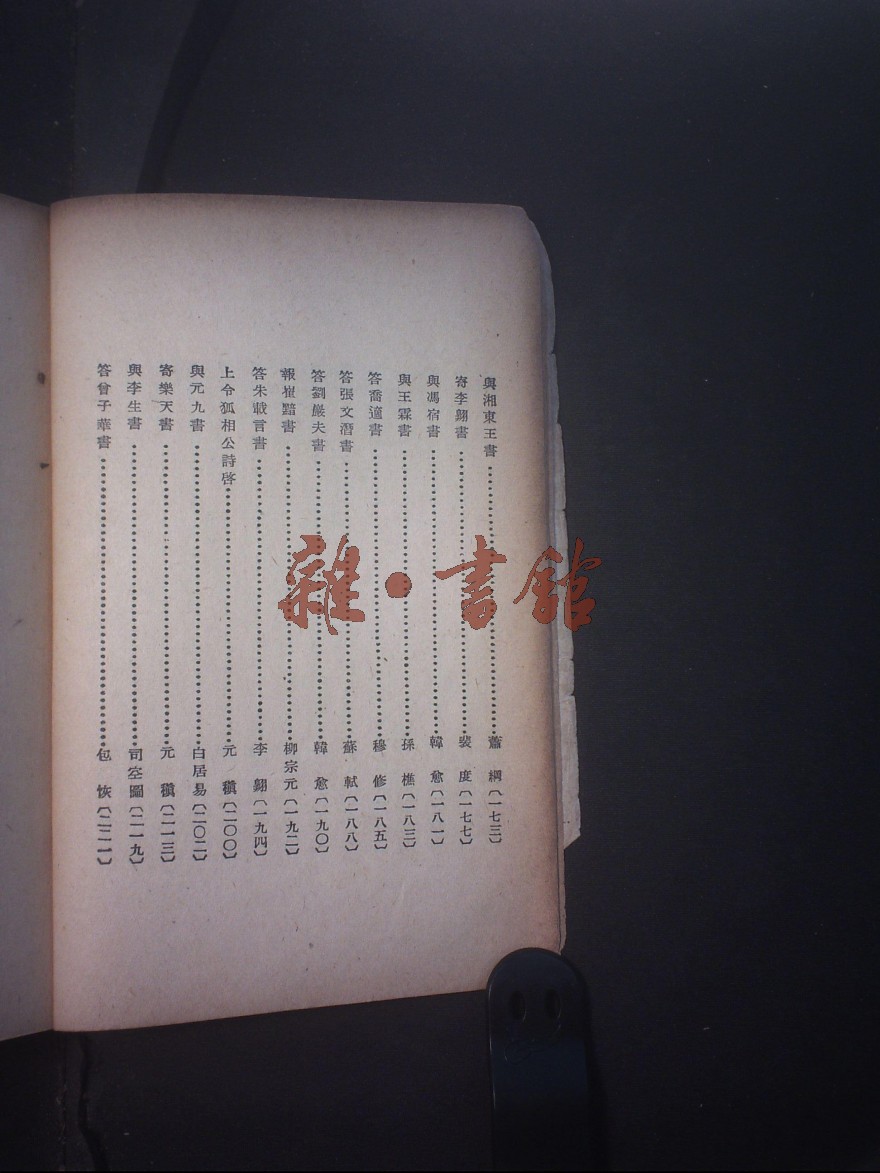 與湘東王書……蕭 綱〔一七三〕
寄李翺書……裴 度〔一七七〕
與馮宿書……韓 愈〔一八一〕
與王霖書……孫 樵〔一八三〕
答喬適書……穆 修〔一八五〕
答張文潛書……蘇 軾〔一八八〕
答劉嚴夫書……韓 愈〔一九〇〕
報崔黯書……柳宗元〔一九二〕
答朱載言書……李 翺〔一九四〕
上令狐相公詩啓……元 稹〔二〇〇〕
與元九書……白居易〔二〇二〕
寄樂天書……元 稹〔二一三〕
與李生書……司空圖〔二一九〕
答曾子華書……包 恢〔二二一〕
雜·書館